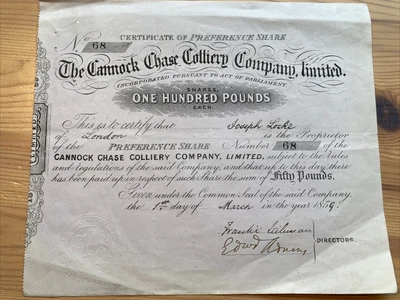 CERTIFICATE OF PREFERENCE SHARE
No. 68
The Cannock Chase Colliery Company, limited.
INCORPORATED PURSUANT TO ACT OF PARLIAMENT.
SHARES,
ONE HUNDRED POUNDS
EACH.
This is to certify that Joseph Locke
of London is the Proprietor
of the PREFERENCE SHARE Number 68 of the
CANNOCK CHASE COLLIERY COMPANY, LIMITED, subject to the Rules
and Regulations of the said Company and that up to this day there
has been paid up in respect of such Share the sum of Fifty Pounds.
Given under the Common Seal of the said Company,
the 1st day of March in the year 1859.
DIRECTORS.